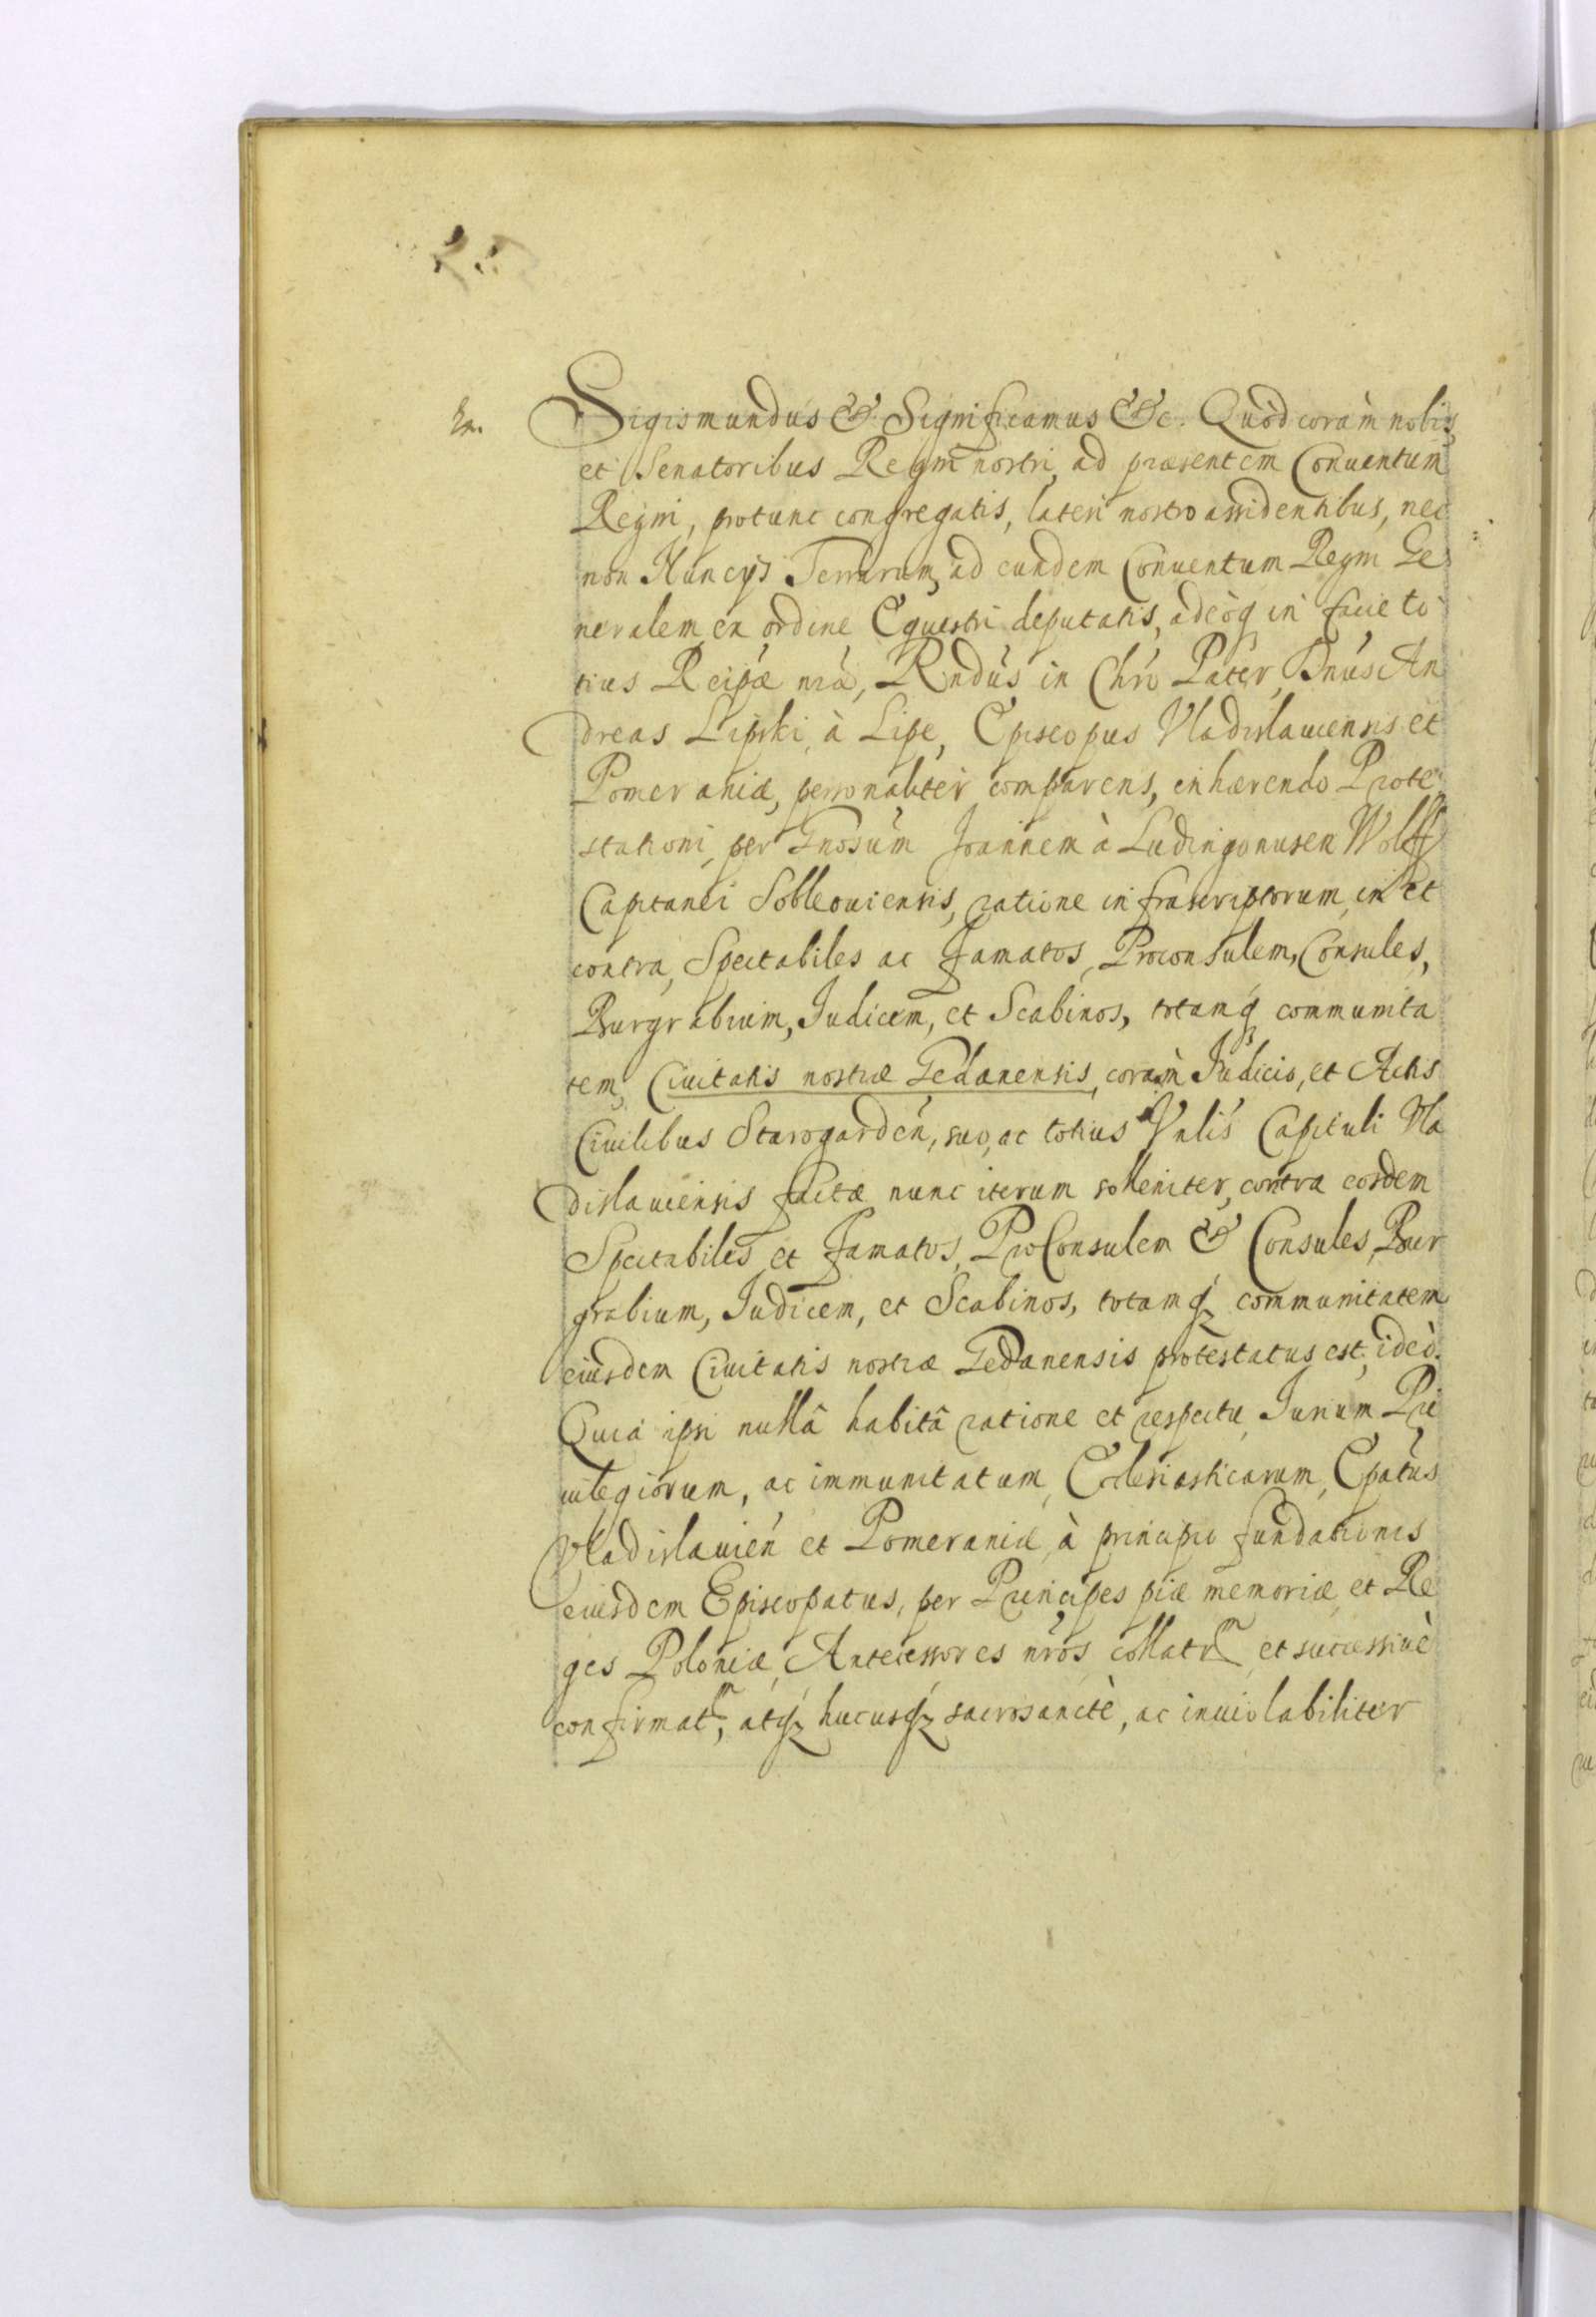 Sigismundus & Significamus &c. Quòd coràm nobis
et Senatoribus Regni nostri, ad præsentem Conuentum
Regni, protunc congregatis, lateri nostro assidentibus, nec
non Nuncijs Terrarum, ad eundem Conuentum Regni Ge
neralem ex ordine Equestri deputatis, adeòq in facie to
tius Reipæ nræ, Rndus in Chro Pater, Dnus An
dreas Lipski à Lipe, Episcopus Vladislauiensis et
Pomeraniæ, personaliter comparens, inhærendo Prote
stationi, per Gnosum Joannem à Ludingonusen Wolff
Capitanei Sobleouiensis, ratione infrascriptorum, in et
contra, Spectabiles ac Famatos, Proconsulem, Consules,
Burgrabium, Iudicem, et Scabinos, totamq communita
tem, Ciuitatis nostræ Gedanensis, coràm Iudicio, et Actis
Ciuilibus Starogarden, suo, ac totius Vnlis Capituli Vla
dislauiensis factæ nunc iterum solleniter, contra eosdem
Spectabiles et Famatos, ProConsulem & Consules, Bur
grabium, Iudicem, et Scabinos, totamq communitatem
eiusdem Ciuitatis nostræ Gedanensis protestatus est, ideò.
Quia ipsi nullâ habitâ ratione et respectu, Iurium Pri
uilegiorum, ac immunitatum, Ecclesiasticarum, Epatus
Vladislauien et Pomeraniæ, à principio fundationis
eiusdem Episcopatus, per Principes piæ memoriæ et Re
ges Poloniæ, Antecessores nros collatrm et successiuè
confirmatrm, atq hucusq sacrosanctè, ac inuiolabiliter